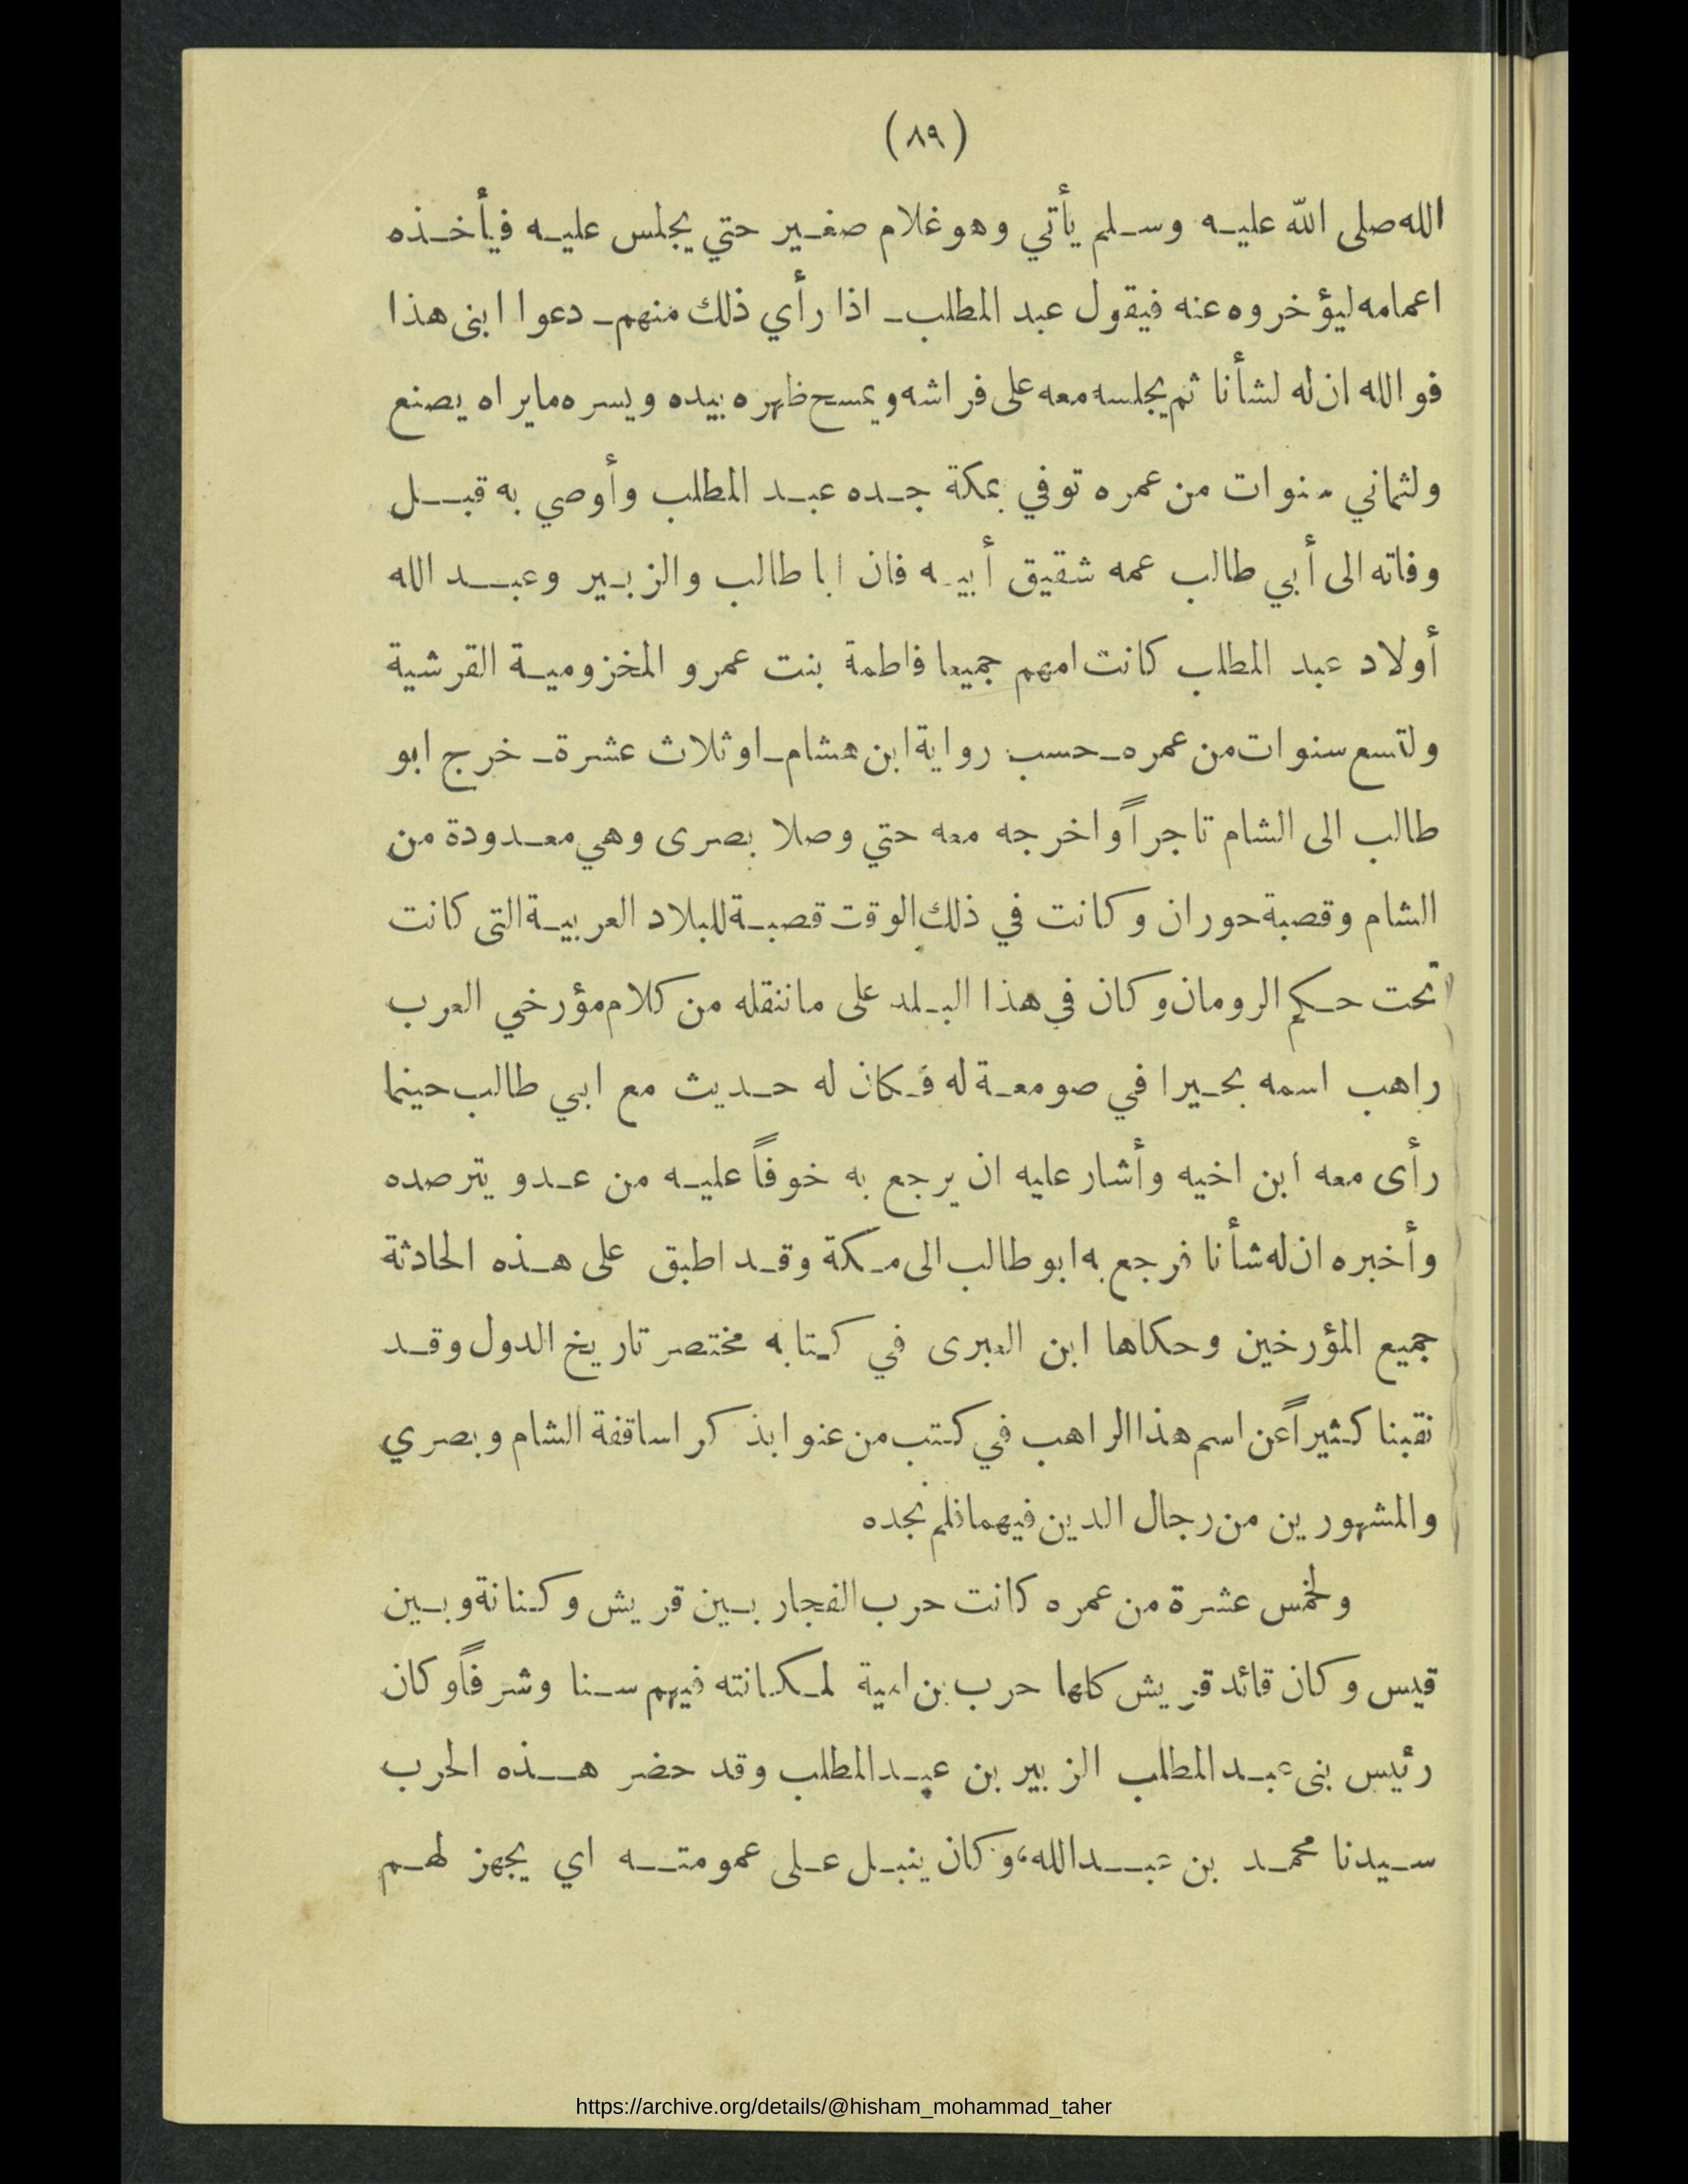 (٨٩)
الله صلى الله عليه وسلم يأتي وهو غلام صغير حتي يجلس عليه فيأخذه
اعمامه ليؤخروه عنه فيقول عبد المطلب ـ اذا رأي ذلك منهم ـ دعوا ابنى هذا
فوالله ان له لشأنا ثم يجلسه معه على فراشه ويمسح ظهره بيده ويسره مايراه يصنع
ولثماني سنوات من عمره توفي بمكة جده عبد المطلب وأوصي به قبل
وفاته الى أبي طالب عمه شقيق أبيه فان ابا طالب والزبير وعبد الله
أولاد عبد المطلب كانت امهم جميعا فاطمة بنت عمرو المخزومية القرشية
ولتسع سنوات من عمره ـ حسب رواية ابن هشام ـ او ثلاث عشرة ـ خرج ابو
طالب الى الشام تاجراً واخرجه معه حتي وصلا بصرى وهي معدودة من
الشام وقصبة حوران وكانت في ذلك الوقت قصبة للبلاد العربية التى كانت
تحت حكم الرومان وكان في هذا البلد على ماننقله من كلام مؤرخي العرب
راهب اسمه بحيرا في صومعة له فكان له حديث مع ابي طالب حينما
رأى معه ابن اخيه وأشار عليه ان يرجع به خوفاً عليه من عدو يترصده
وأخبره ان له شأنا فرجع به ابو طالب الى مكة وقد اطبق على هذه الحادثة
جميع المؤرخين وحكاها ابن العبرى في كتابه مختصر تاريخ الدول وقد
نقبنا كثيراً عن اسم هذا الراهب في كتب من عنوا بذكر اساقفة الشام وبصري
والمشهورين من رجال الدين فيهما فلم نجده
ولخمس عشرة من عمره كانت حرب الفجار بين قريش وكنانة وبين
قيس وكان قائد قريش كلها حرب بن امية لمكانته فيهم سنا وشرفاً وكان
رئيس بنى عبد المطلب الزبير بن عبد المطلب وقد حضر هذه الحرب
سيدنا محمد بن عبد الله، وكان ينبل على عمومته اي يجهز لهم
https://archive.org/details/@hisham_mohammad_taher